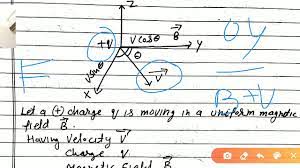 Z
+V
V cosθ
B⃗
Y
θ
V sinθ
V⃗
X
F
B+V
Let a (+) charge q is moving in a uniform magnetic
field B⃗.
Having Velocity V⃗
Charge q
Magnetic Field B⃗